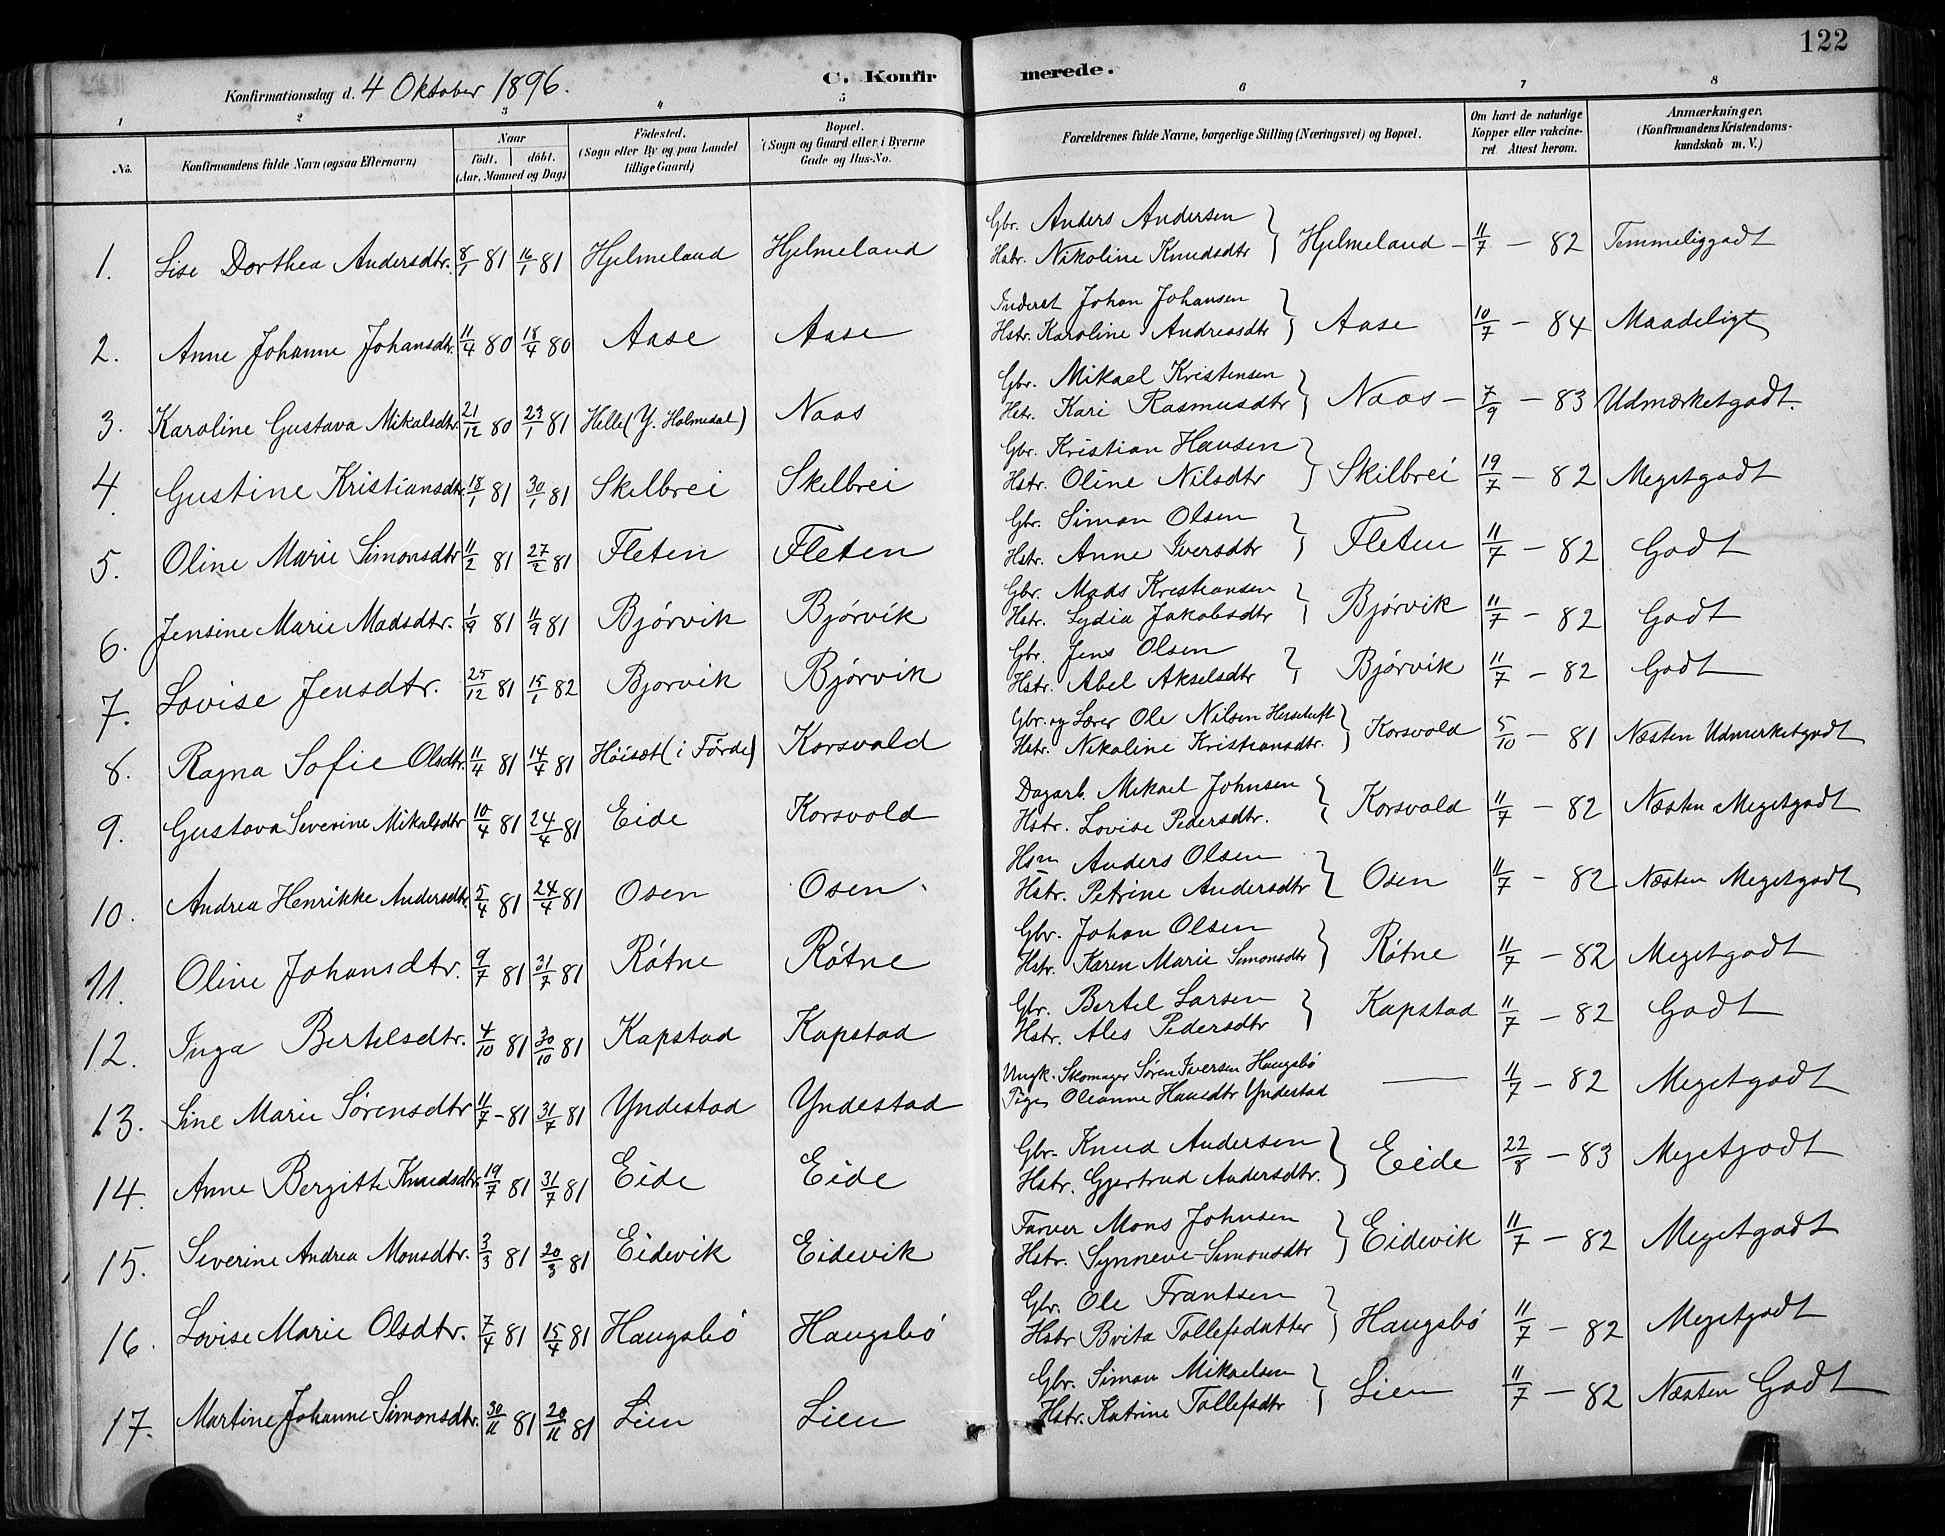 122
Konfirmationsdag d. 4 Oktober 1896.
C. Konfirmerede.
1 2 3 4 5 6 7 8
No. Konfirmandens fulde Navn (ogsaa Efternavn) Naar født. døbt. (Aar, Maaned og Dag) Fødested. (Sogn eller By og paa Landet tillige Gaard) Bopæl. (Sogn og Gaard eller i Byerne Gade og Hus-No. Forældrenes fulde Navne, borgerlige Stilling (Næringsvei) og Bopæl. Om havt de naturlige Kopper eller vakcineret Attest herom. Anmærkninger. (Konfirmandens Kristendomskundskab m. V.)
1. Lise Dorthea Andersdtr. 8/1 81 16/1 81 Hjelmeland Hjelmeland Gbr. Anders Andersen
Hstr. Nikoline Knudsdtr } Hjelmeland - 11/7 - 82 Temmeliggodt
2. Anne Johanne Johansdtr. 11/4 80 18/4 80 Aase Aase Inderst Johan Johansen
Hstr. Karoline Andreasdtr } Aase 10/7 - 84 Maadeligt
3. Karoline Gustava Mikalsdtr. 21/12 80 23/1 81 Helle (Y. Holmedal) Naas Gbr. Mikael Kristensen
Hstr. Kari Rasmusdtr } Naas - 7/9 - 83 Udmærketgodt.
4. Gustine Kristiansdtr. 18/1 81 30/1 81 Skilbrei Skilbrei Gbr. Kristian Hansen
Hstr. Oline Nilsdtr } Skilbrei 19/7 - 82 Megetgodt
5. Oline Marie Simonsdtr 11/2 81 27/2 81 Fleten Fleten Gbr. Simon Olsen
Hstr. Anne Iversdtr } Fleten 11/7 - 82 Godt
6. Jensine Marie Madsdtr. 1/9 81 11/9 81 Bjørvik Bjørvik Gbr. Mads Kristiansen
Hstr. Lydia Jakobsdtr } Bjørvik 11/7 - 82 Godt
7. Lovise Jensdtr. 25/12 81 15/1 82 Bjorvik Bjørvik Gbr. Jens Olsen
Hstr. Abel Akselsdtr } Bjørvik 11/7 - 82 Godt
8. Ragna Sofie Olsdtr. 11/4 81 14/4 81 Høisæt (i Førde) Korsvold Gbr. og Lærer Ole Nilsen
Hstr. Nikoline Kristiansdtr. } Korsvold 5/10 - 81 Næsten Udmerketgodt
9. Gustava Severine Mikalsdtr 10/4 81 24/4 81 Eide Korsvold Dagarb. Mikael Johnsen
Hstr. Lovise Pedersdtr. } Korsvold 11/7 - 82 Næsten Megetgodt
10. Andrea Henrikke Andersdtr. 5/4 81 24/4 81 Osen Osen. Hsm Anders Olsen
Hstr. Petrine Andersdtr } Osen 11/7 - 82 Næsten Megetgodt
11. Oline Johansdtr. 9/7 81 31/7 81 Røtne Røtne Gbr. Johan Olsen
Hstr. Karen Marie Simonsdtr } Røtne 11/7 - 82 Megetgodt
12. Inga Bertelsdtr. 4/10 81 30/10 81 Kapstad Kapstad Gbr. Bertel Larsen
Hstr. Ales Pedersdtr } Kapstad 11/7 - 82 Godt
13. Sine Marie Sørensdtr 11/7 - 81 31/7 81 Yndestad Yndestad Ungk. Skomager Søren Iversen Haugsbø
Pige Oleanne Hansdtr Yndestad — 11/7 - 82 Megetgodt
14. Anne Bergitte Knudsdtr. 19/7 81 31/7 81 Eide Eide Gbr. Knud Andersen
Hstr. Gjertrud Andersdtr. } Eide 22/8 - 83 Megetgodt
15. Severine Andrea Monsdtr. 3/3 81 20/3 81 Eidevik Eidevik Farver Mons Johnsen
Hstr. Synneve Simonsdtr } Eidevik 11/7 - 82 Megetgodt
16. Lovise Marie Olsdtr. 7/4 81 15/4 81 Haugsbø Haugsbø Gbr. Ole Frantsen
Hstr Brita Tollefsdatter } Haugsbø 11/7 - 82 Megetgodt
17. Martine Johanne Simonsdtr. 30/11 81 20/11 81 Lien Lien Gbr. Simon Mikaelsen
Hstr. Katrine Tollefsdtr } Lien 11/7 - 82 Næsten Godt